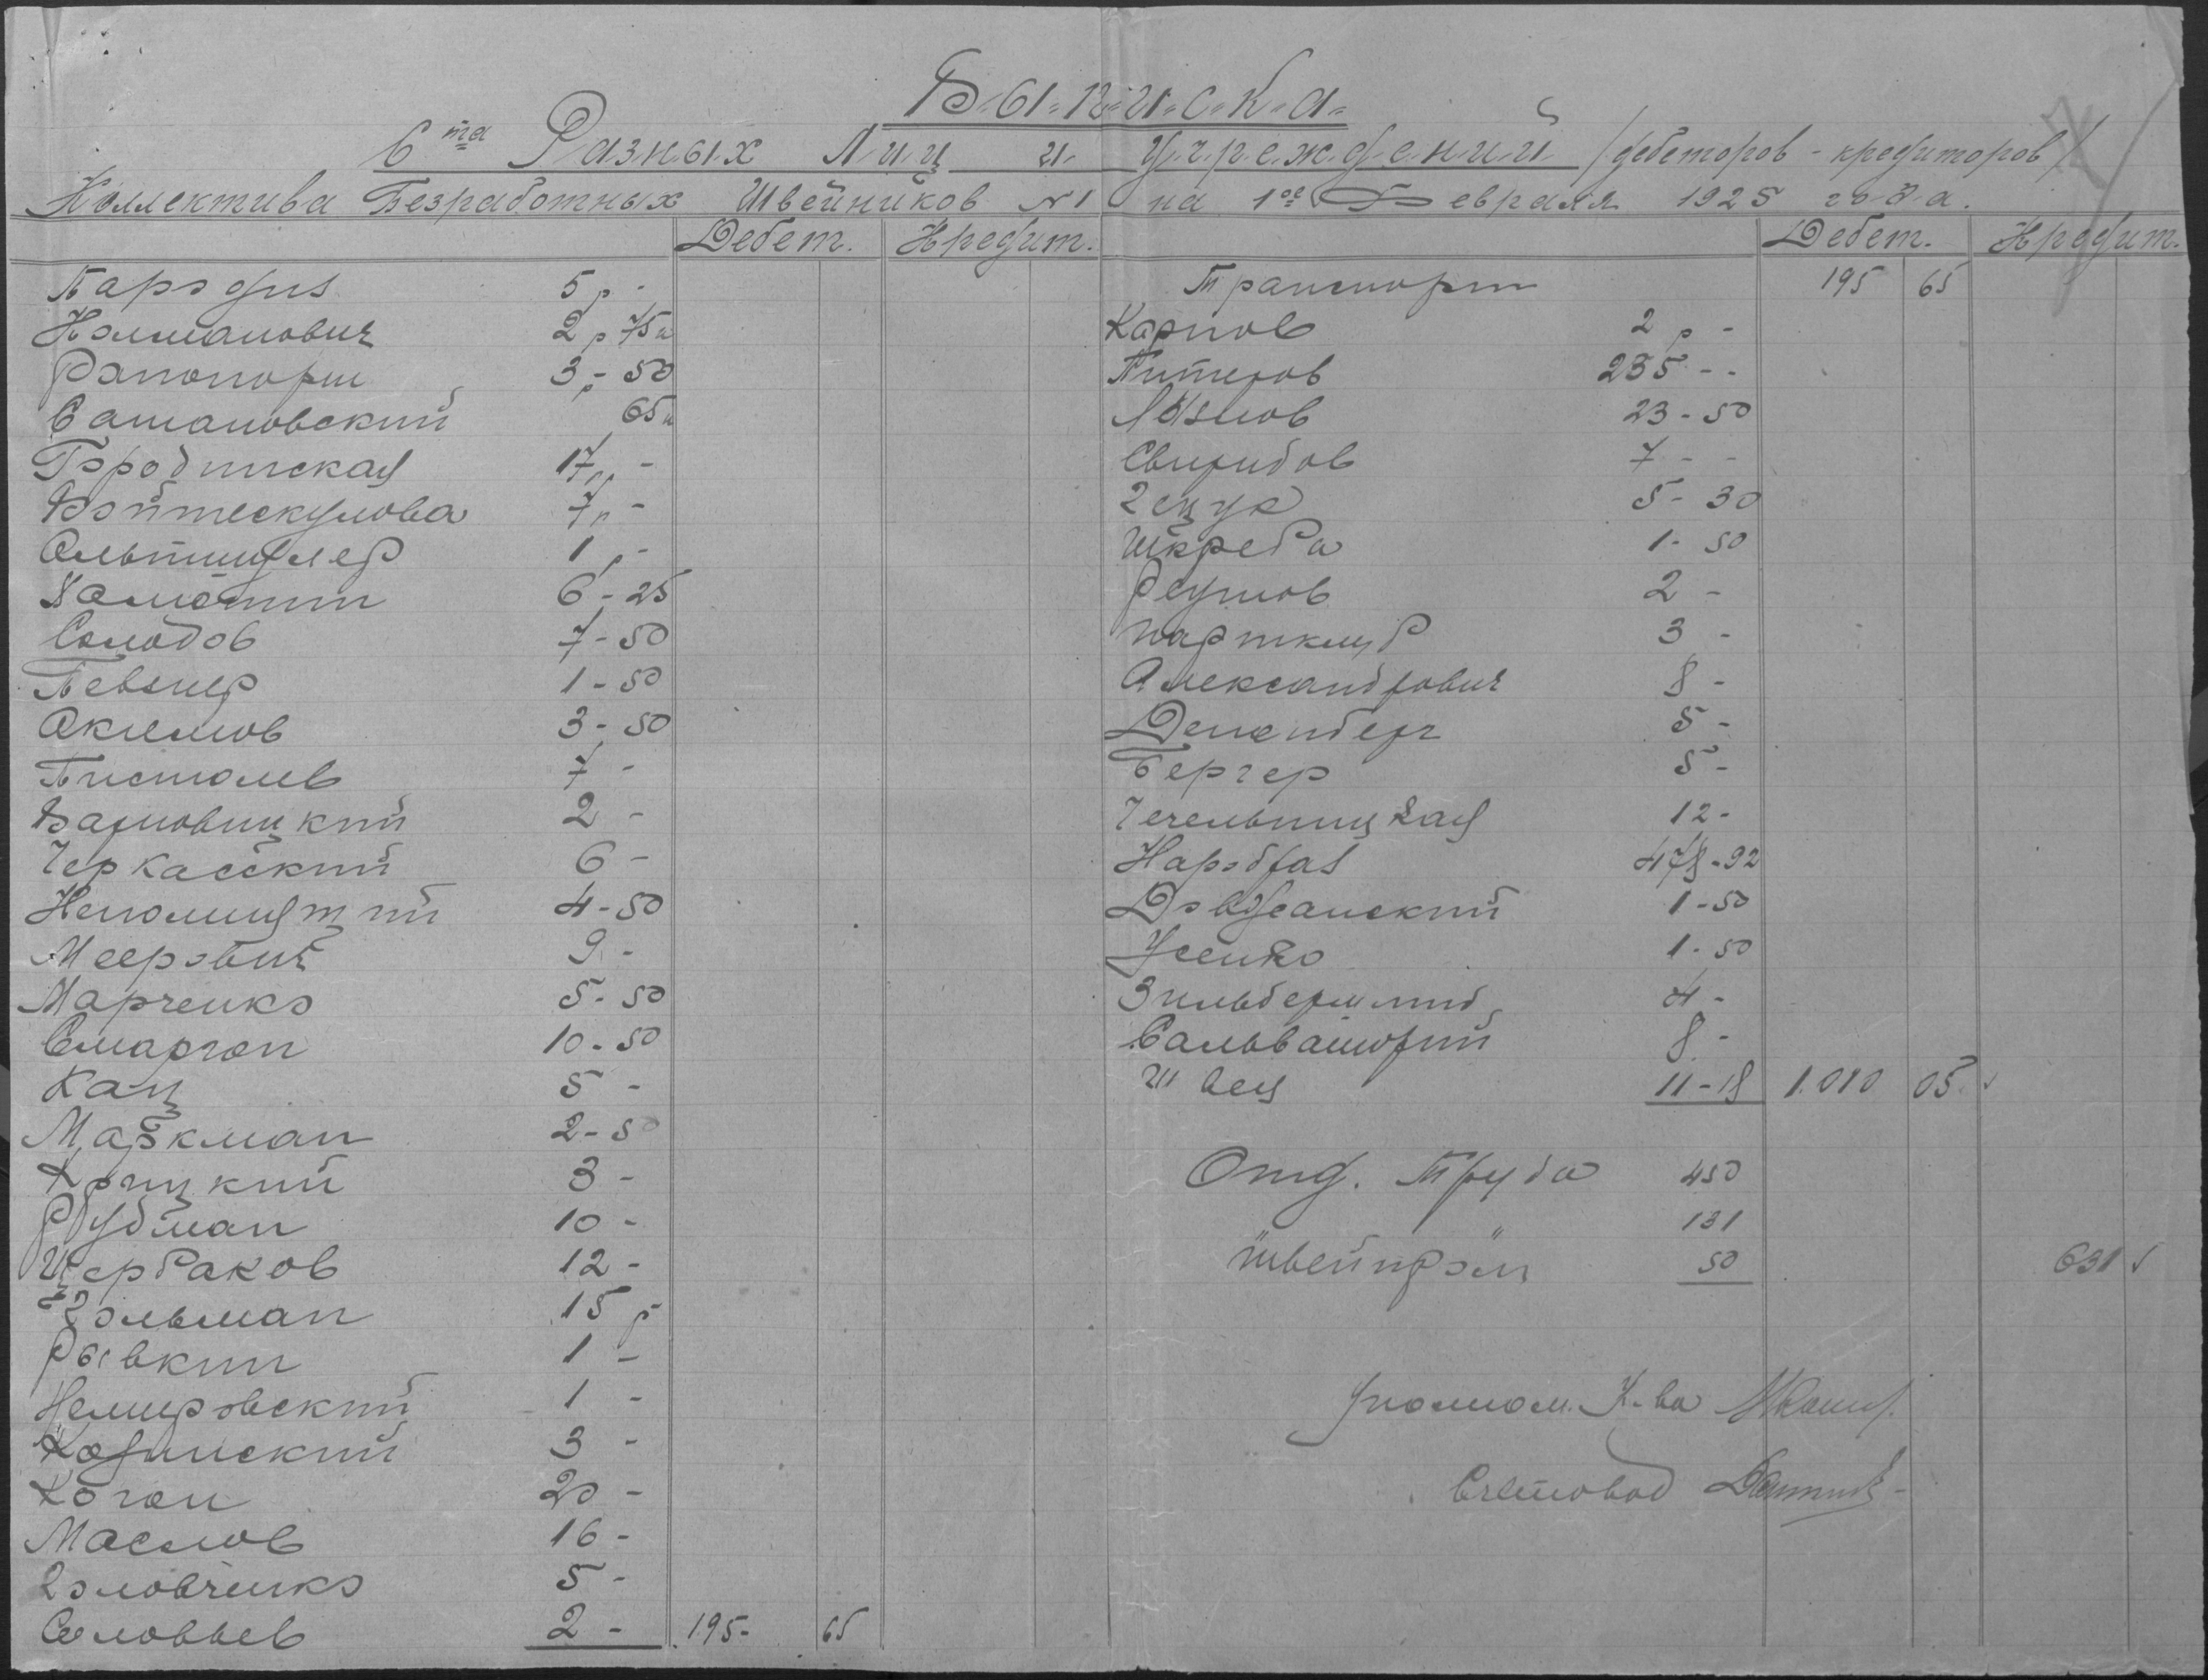 В-ы-п-и-с-к-а
С<sup>та</sup> Разных Лиц и Учреждений /дебеторов - кредиторов/
Коллектива Безработных Швейников №1 на 1<sup>ое</sup> Февраля 1925 года.
Дебет. Кредит.
Пародия 5 р -
Колманович 2 р 75 к
Рапопорт 3 - 50
Сатановский 65 к
Городинская 17 р -
Войтескулова 7 р -
Альтшулер 1 р -
6 - 25
Солодов 7 - 50
Певзнер 1 - 50
3 - 50
Пистолев 7 -
2 -
Черкасский 6 -
Непомнящий 4 - 50
Меерович 9 -
Марченко 5 - 50
Смаргон 10 - 50
Кац 5 -
Маркман 2 - 50
Крицкий 3 -
Рудман 10 -
Щербаков 12 -
Гольман 15 р
Рывкин 1 -
Немировский 1 -
3 -
Коган 20 -
Маслов 16 -
Головченко 5 -
Соловьев 2 - 195 - 65
Дебет. Кредит.
Транспорт 195 65
Карпов 2 р -
235 - -
23 - 50
Свиридов 7 - -
Гецур 5 - 30
Шкреба 1 - 50
Реушов 2 -
Парткляр 3 -
Александрович 8 -
5 -
Бергер 5 -
Чечельницкая 12 -
Нароброз 478 - 92
Довджанский 1 - 50
Усенко 1 - 50
Зильбершмид 4 -
Сальваторий 8 -
Швец 11 - 18 1.010 05
Отд. Труда 450
131
"Швейпром" 50 631
Уполном. К-ва
Счетовод